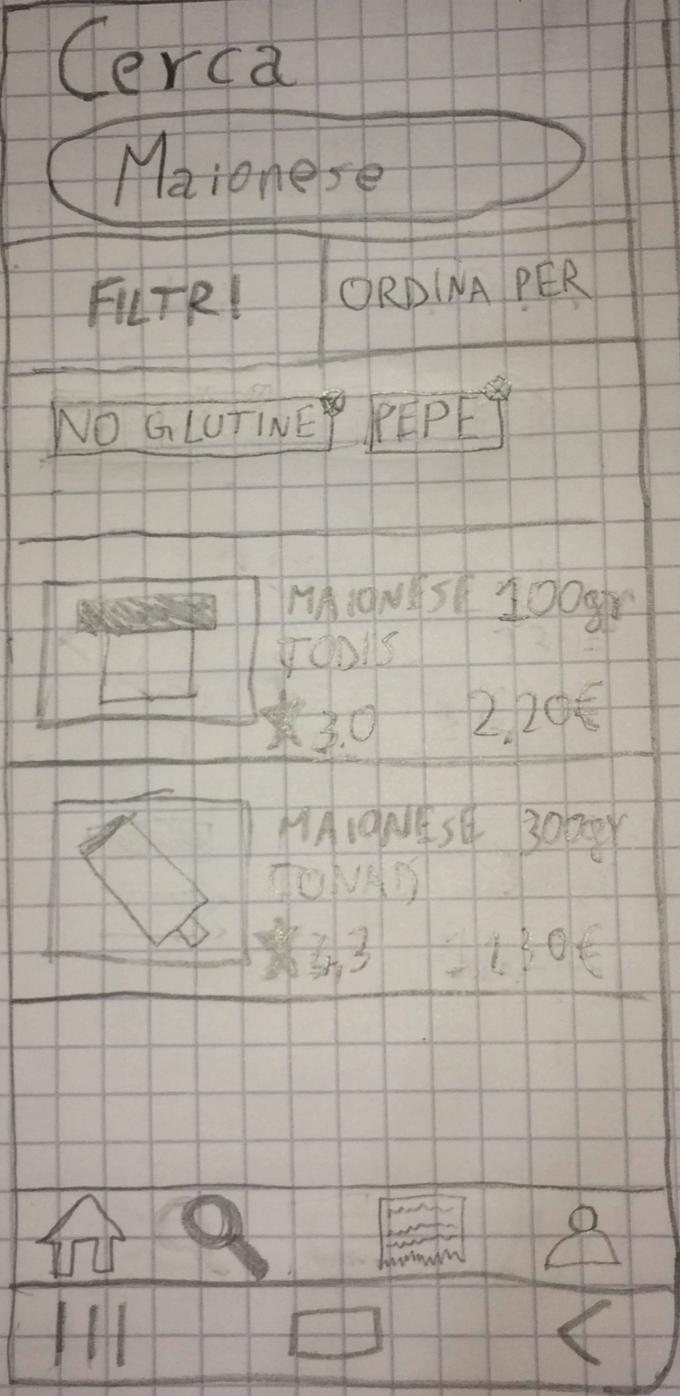 Cerca
Maionese
FILTRI ORDINA PER
NO GLUTINE PEPE
MAIONESE 100gr
TODIS
3.0 2,20€
MAIONESE 300gr
CONAD
1,30€